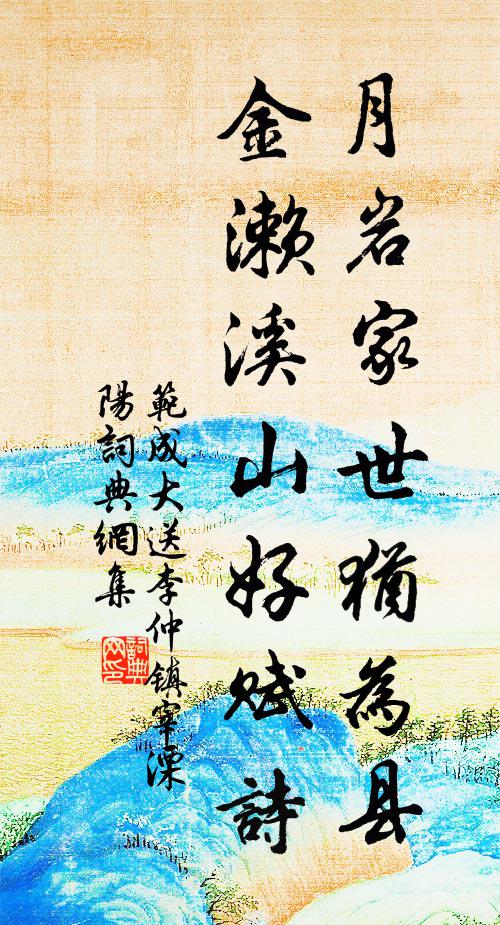 月岩家世犹為县
金瀨溪山好赋詩
範成大送李仲镇宰溧
陽詞典網集
詞典
网印